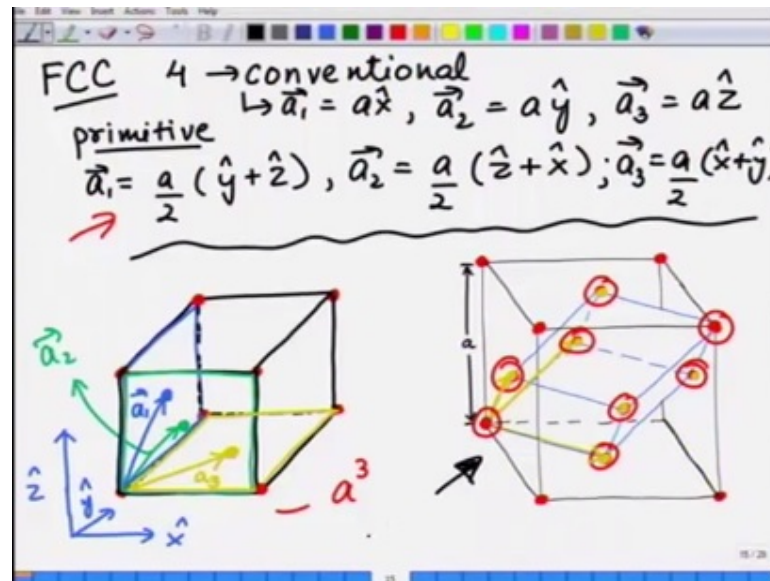 Edit View Insert Actions Tools Help
FCC 4 → conventional
↳ a⃗₁ = a x̂ , a⃗₂ = a ŷ , a⃗₃ = a ẑ
primitive
a⃗₁ = a/2 ( ŷ + ẑ ) , a⃗₂ = a/2 ( ẑ + x̂ ) ; a⃗₃ = a/2 ( x̂ + ŷ )
a⃗₂
a⃗₁
a₃
ẑ
ŷ
x̂
a³
a
15